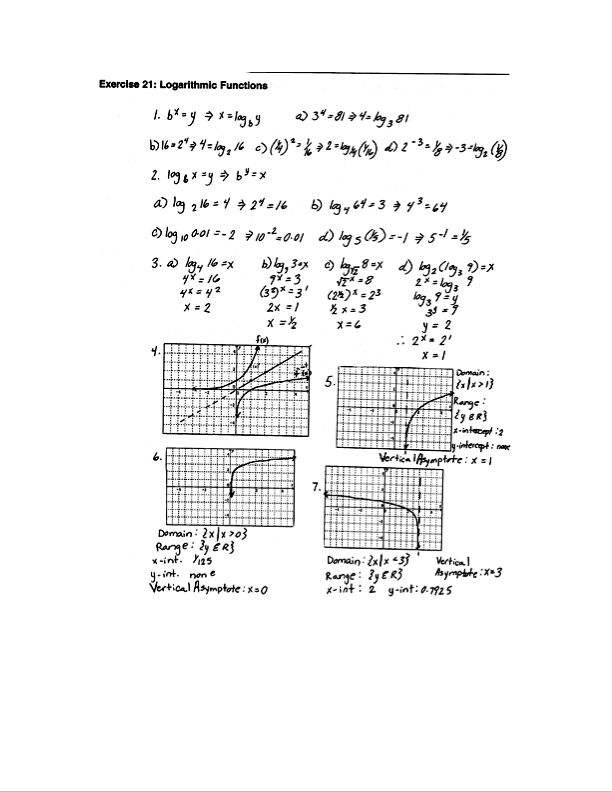 Exercise 21: Logarithmic Functions
1. b^x = y ⇒ x = log_b y a) 3^4 = 81 ⇒ 4 = log_3 81
b) 16 = 2^4 ⇒ 4 = log_2 16 c) (1/4)^2 = 1/16 ⇒ 2 = log_1/4 (1/16) d) 2^-3 = 1/8 ⇒ -3 = log_2 (1/8)
2. log_b x = y ⇒ b^y = x
a) log_2 16 = 4 ⇒ 2^4 = 16 b) log_4 64 = 3 ⇒ 4^3 = 64
c) log_10 0.01 = -2 ⇒ 10^-2 = 0.01 d) log_5 (1/5) = -1 ⇒ 5^-1 = 1/5
3. a) log_4 16 = x b) log_9 3 = x c) log_√2 8 = x d) log_2 (log_3 9) = x
4^x = 16 9^x = 3 √2^x = 8 2^x = log_3 9
4^x = 4^2 (3^2)^x = 3^1 (2^1/2)^x = 2^3 log_3 9 = y
x = 2 2x = 1 1/2 x = 3 3^y = 9
x = 1/2 x = 6 y = 2
∴ 2^x = 2^1
x = 1
4.
f(x)
5.
Domain:
{x|x>1}
Range:
{y∈R}
x-intercept: 2
y-intercept: none
Vertical Asymptote: x = 1
6.
Domain: {x|x>0}
Range: {y∈R}
x-int. 1/125
y-int. none
Vertical Asymptote: x=0
7.
Domain: {x|x<3} Vertical
Range: {y∈R} Asymptote: x=3
x-int: 2 y-int: 0.7925